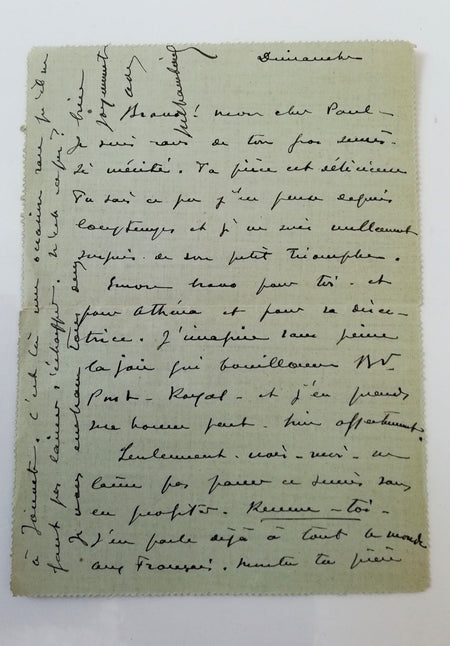 Dimanche
Bravo! mon cher Paul -
Je suis ravi de ton gros succès -
si mérité. Ta pièce est délicieuse
Tu sais ce que j'en pense depuis
longtemps et je ne suis nullement
surpris de son petit triomphe.
Encore bravo pour toi - et
pour Athéna et pour sa direc-
trice. J'imagine sans peine
la joie qui bouillonne Bd
Port-Royal - et j'en prends
ma bonne part - bien affectueusement.
Seulement - ne
laisse pas passer ce succès sans
en profiter. Remue-toi -
J'en parle déjà à tout le monde
aux Français. ta pièce
à Jouvet. C'est là une occasion rare qu'il ne
faut pas laisser s'échapper. N'est-ce pas?
Je vous embrasse tous deux bien
joyeusement